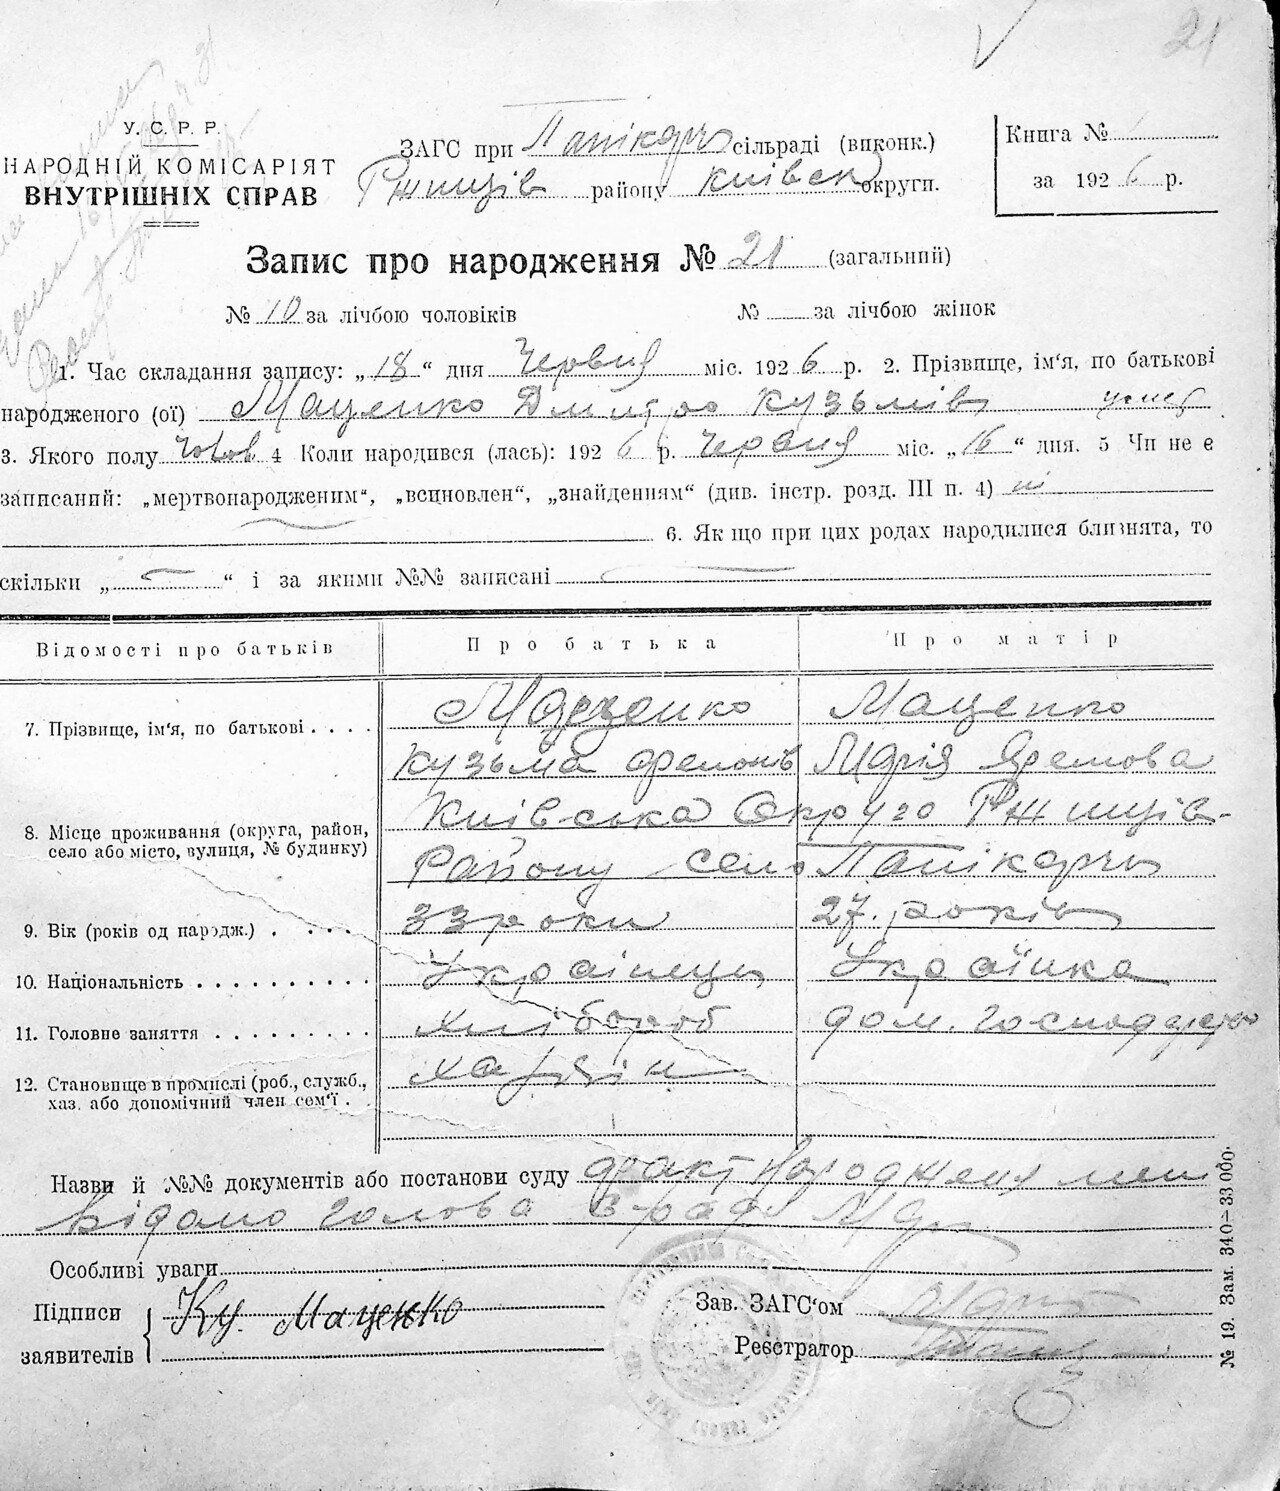 21
У. С. Р. Р.
НАРОДНІЙ КОМІСАРІЯТ
ВНУТРІШНІХ СПРАВ
ЗАГС при Папікарн сільраді (виконк.)
Ржищів району Київськ округи.
Книга №
за 1926 р.
Запис про народження № 21 (загальний)
№ 10 за лічбою чоловіків № за лічбою жінок
1. Час складання запису: „18“ дня Червня міс. 1926 р. 2. Прізвище, ім‘я, по батькові
народженого (ої) Маценко Дмитро Кузьмів
3. Якого полу чолов 4 Коли народився (лась): 1926 р. Червня міс. „16“ дня. 5 Чи не є
записаний: „мертвонародженим“, „всиновлен“, „знайденням“ (див. інстр. розд. III п. 4) ні
6. Як що при цих родах народилися близнята, то
скільки „ “ і за якими №№ записані
Відомості про батьків Про батька Про матір
7. Прізвище, ім‘я, по батькові . . . . Маценко Маценко
Кузьма Филонів Марія Яремова
8. Місце проживання (округа, район, село або місто, вулиця, № будинку) Київська Округа Ржищів-
Району село Папікарн
9. Вік (років од народж.) . . . . 33 роки 27. років
10. Національність . . . . . . . . . . Українець Українка
11. Головне заняття . . . . . . . . Хлібороб дом. Господарство
12. Становище в промислі (роб., служб., хаз. або допомічний член сем‘ї . Хазяїн
Назви й №№ документів або постанови суду факт народженя мені
відомо голова с-ради
Особливі уваги
Підписи заявителів Ку. Маценко
Зав. ЗАГС‘ом
Реєстратор
№ 19. Зам. 340—23 обо.